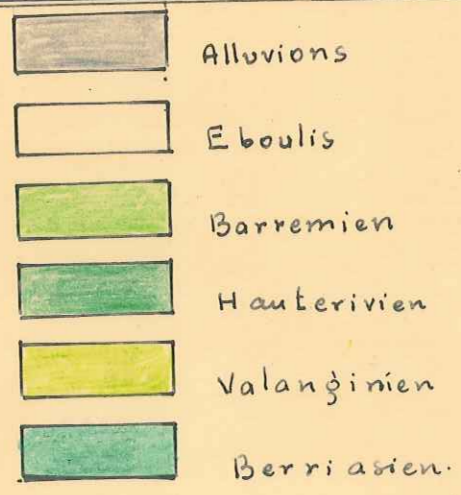 Alluvions
Eboulis
Barremien
Hauterivien
Valanginien
Berriasien.